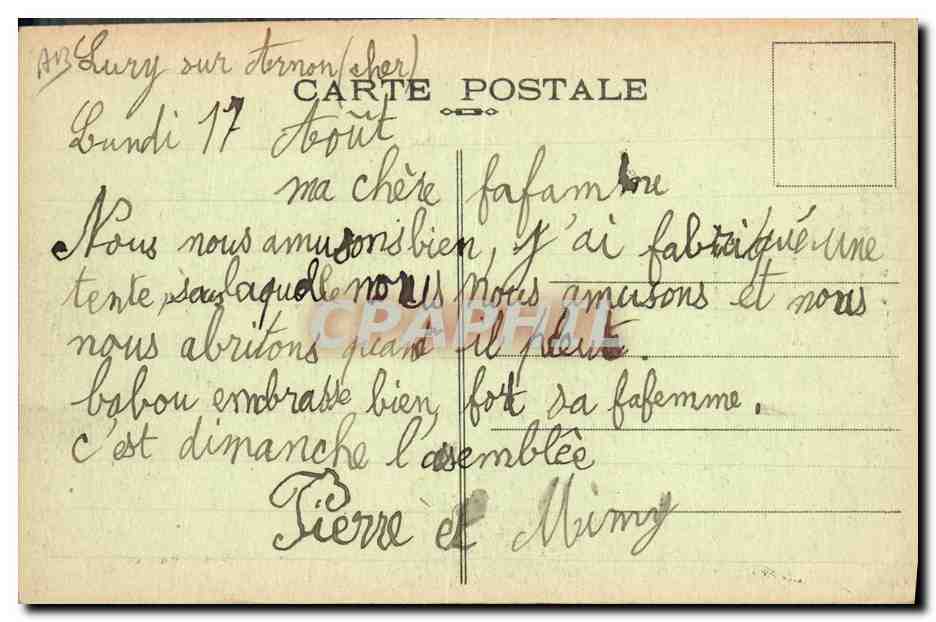 AB Lury sur Arnon (cher)
CARTE POSTALE
Lundi 17 Août
ma chère fafamme
Nous nous amusons bien, j'ai fabriqué une
tente sous laquelle nous nous amusons et nous
nous abritons quand il pleut.
CPAPHIL
babou embrasse bien, fort sa fafemme.
c'est dimanche l'asemblêe
Pierre et Mimy